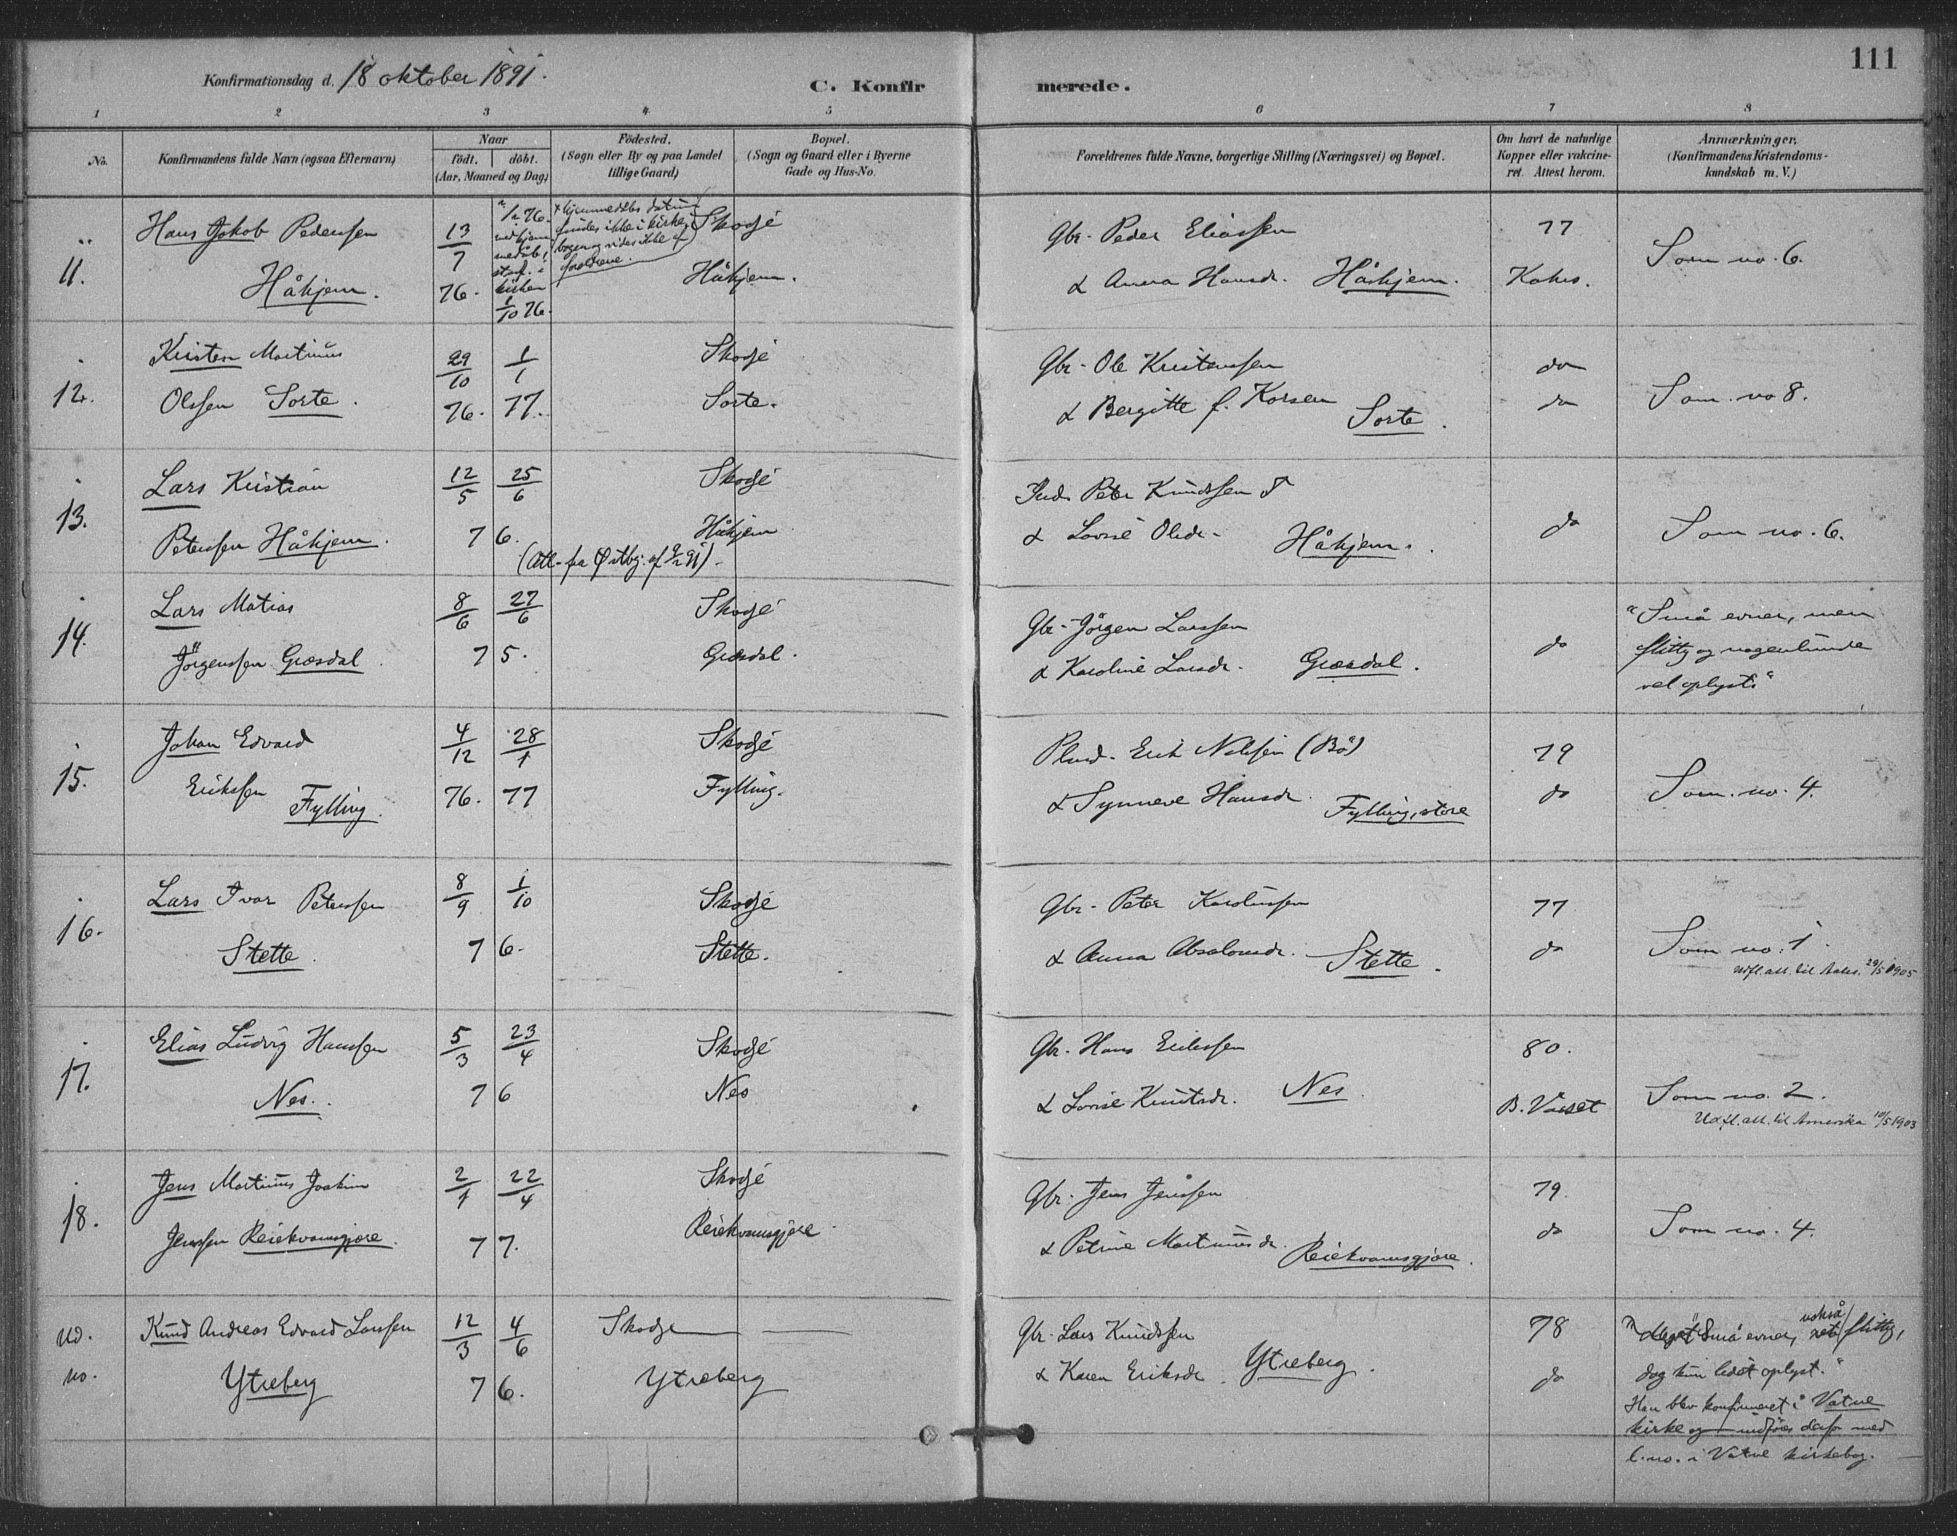 111
Konfirmationsdag d. 18 oktober 1891.
C. Konfirmerede.
1 2 3 4 5 6 7 8
No.
Konfirmandens fulde Navn (ogsaa Efternavn)
Naar
født. døbt.
(Aar, Maaned og Dag)
Fødested.
(Sogn eller By og paa Landet
tillige Gaard)
Bopæl.
(Sogn og Gaard eller i Byerne
Gade og Hus-No.
Forældrenes fulde Navne, borgerlige Stilling (Næringsvei) og Bopæl.
Om havt de naturlige
Kopper eller vakcine-
ret. Attest herom.
Anmærkninger.
(Konfirmandens Kristendoms-
kundskab m. V.)
11. Hans Jakob Pedersen
Håhjem.
13/7 76.
76.
kirken
1/10 76.
hjemmedåbs datum
findes ikke i kirke
bogen og vides ikke af
forældrene.
Skodje
Håhjem.
Gbr. Peder Eliassen
& Anna Hansdr. Håhjem.
77
Kahrs.
Som no. 6.
12. Kristen Martinus
Olssen Sorte.
29/10 76. 1/1 77.
Skodje
Sorte.
Gbr. Ole Kristensen
& Bergitte f. Korsen Sorte.
do
do
Som no 8.
13. Lars Kristian
Peterssen Håhjem.
12/5 25/6
76.
Skodje
Håhjem
Peter Knudssen
& Lovise Olsdr. Håhjem.
do
Som no. 6.
14. Lars Matias
Jørgenssen Græsdal
8/6 27/6
75.
Skodje
Græsdal.
Gbr. Jørgen Larssen
& Karoline Larsdr. Græsdal.
do
"Små evner, men
flittig og nogenlunde
vel oplyst."
15. Johan Edvard
Erikssen Fylling.
4/12 76. 28/1 77
Skodje
Fylling.
Erik Nilssen (Bø)
& Synneve Hansdr. Fylling, store
79
do
Som no. 4.
16. Lars Ivar Peterssen
Stette.
8/9 1/10
76.
Skodje
Stette.
Gbr. Peter Karolussen
& Anna Absalonsdr. Stette.
77
do
Som no. 1.
Udfl. att. til Aales. 29/5 1905
17. Elias Ludvig Hanssen
Nes.
5/3 23/4
76
Skodje
Nes
Gbr. Hans Erikssen
& Lovise Knutsdr. Nes
80.
Som no. 2.
Udfl. att. til Amerika 10/5 1903
18. Jens Martinus Joakim
Jenssen Reiekvamsgjære.
2/1 22/4
77.
Skodje
Reiekvamsgjære.
Gbr. Jens Jenssen
& Petrine Martinusdr. Reiekvamsgjære.
79.
do
Som no. 4.
Ud.
no.
Knud Andreas Edvard Larssen
Ytreberg
12/3 4/6
76.
Skodje
Ytreberg
Gbr. Lars Knudssen
& Karen Eriksdr. Ytreberg.
78
do
Små evner, også flittig,
dog kun lidet oplyst."
Han blev konfirmeret i Vatne
kirke og indføres derfor med
l. no. i Vatne kirkebog.